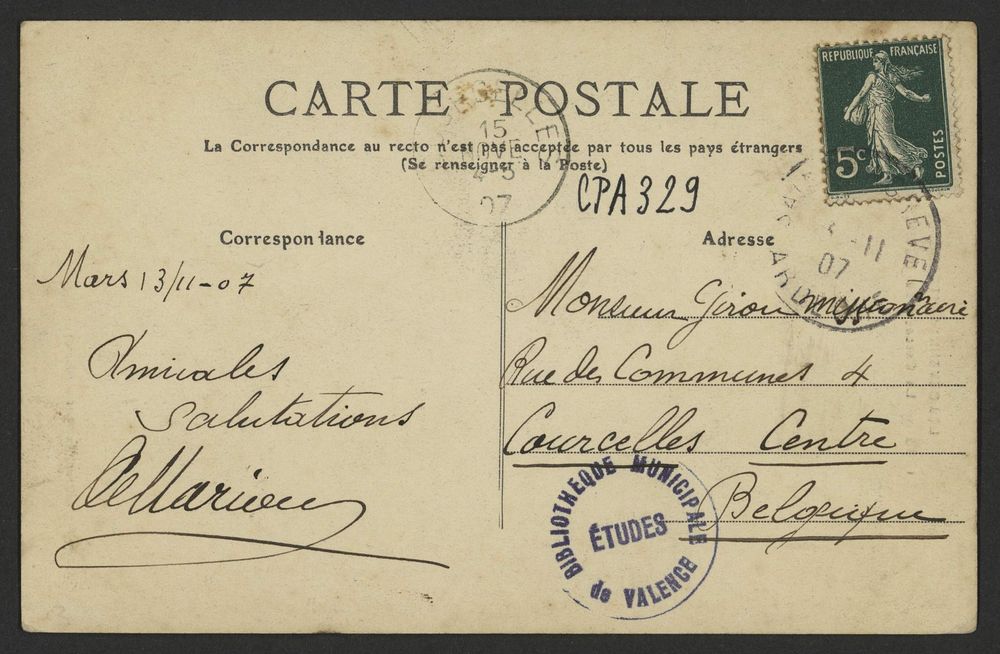 CARTE POSTALE
La Correspondance au recto n'est pas acceptée par tous les pays étrangers
(Se renseigner à la Poste)
REPUBLIQUE FRANÇAISE
5c
POSTES
15
NOVE
4-5
07
CPA 329
Correspondance
Adresse
-11
07
Mars 13/11-07
Amicales
salutations
Monsieur Girou missionnaire
Rue des Communes 4
Courcelles Centre
Belgique
BIBLIOTHEQUE MUNICIPALE
ÉTUDES
de VALENCE